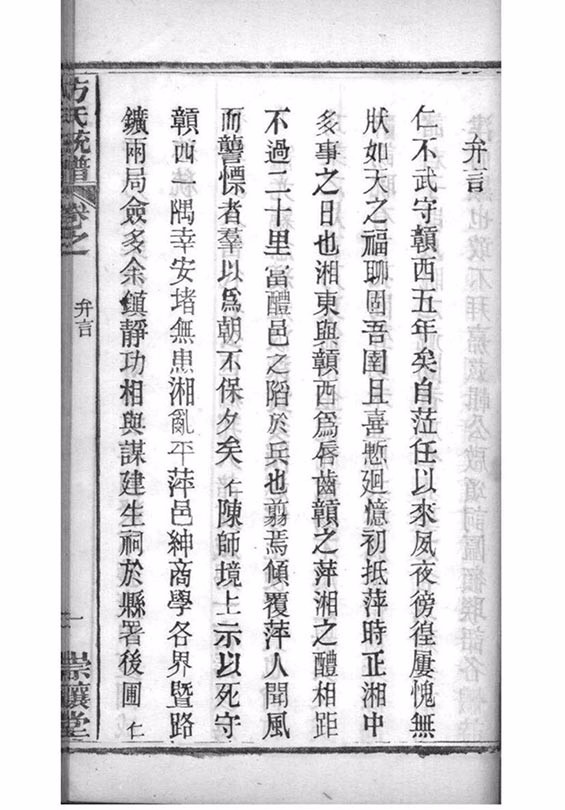 弁言
仁不武守贛西五年矣自蒞任以來夙夜徬徨屢愧無
狀如天之福聊固吾圉且喜慙廻憶初抵萍時正湘中
多事之日也湘東與贛西爲唇齒贛之萍湘之醴相距
不過二十里當醴邑之陷於兵也翦焉傾覆萍人聞風
而讋慄者羣以爲朝不保夕矣仁陳師境上示以死守
贛西一隅幸安堵無患湘亂平萍邑紳商學各界暨路
鑛兩局僉多余鎮靜功相與謀建生祠於縣署後圃仁
方氏統譜
卷之一
弁言
一
崇讓堂